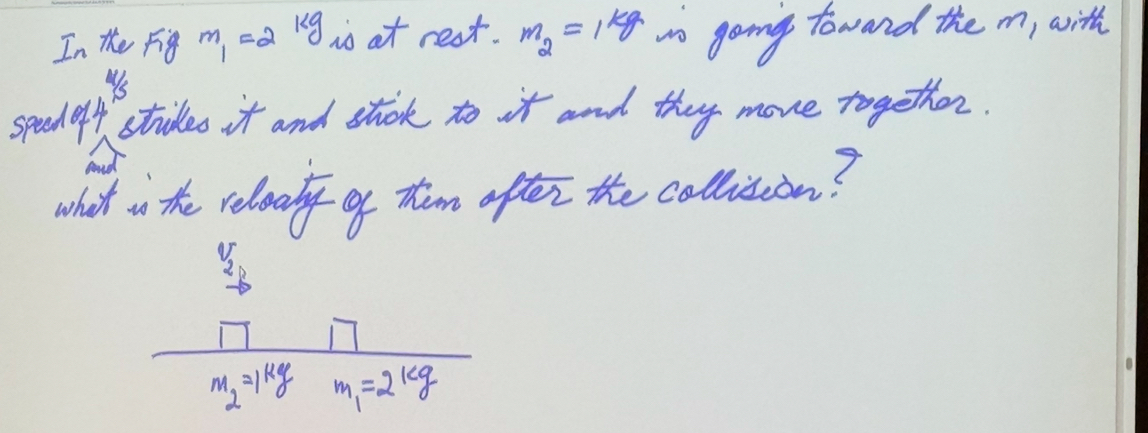 In the Fig m₁ = 2 kg is at rest. m₂ = 1 kg is going toward the m₁ with
speed of 4 m/s and strikes it and stick to it and they move together.
what is the velocity of them after the collision?
V₂
m₂ = 1 kg m₁ = 2 kg